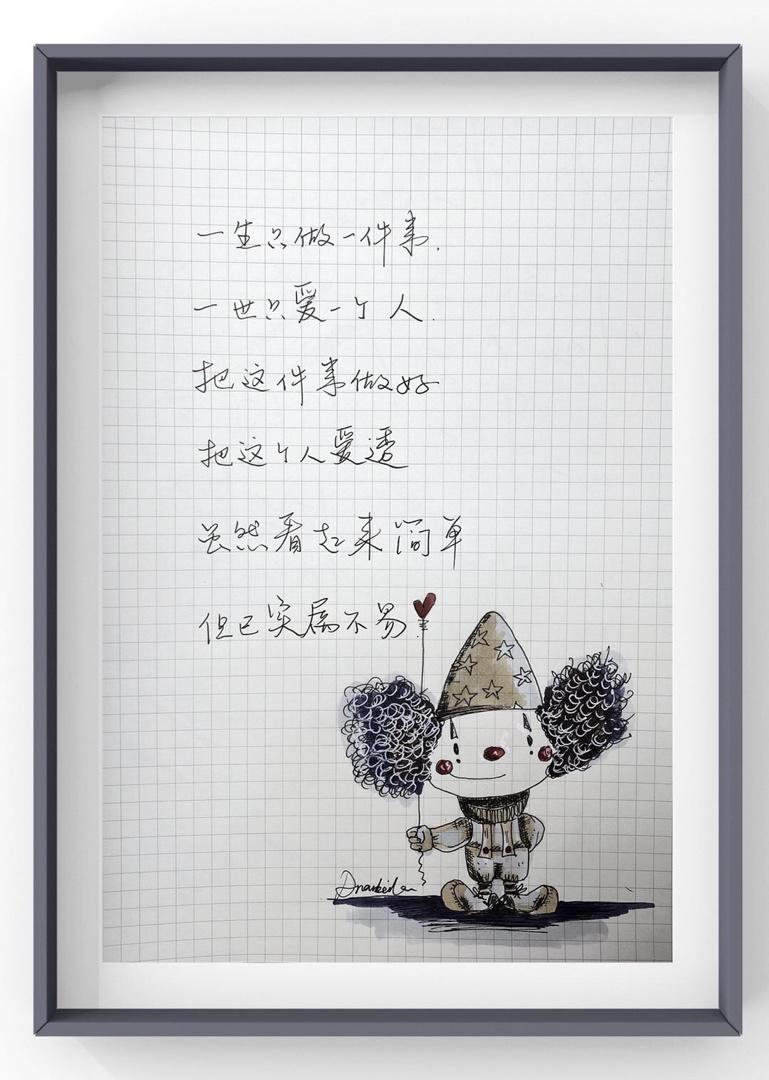 一生只做一件事.
一世只爱一个人.
把这件事做好
把这个人爱透
虽然看起来简单
但已实属不易.